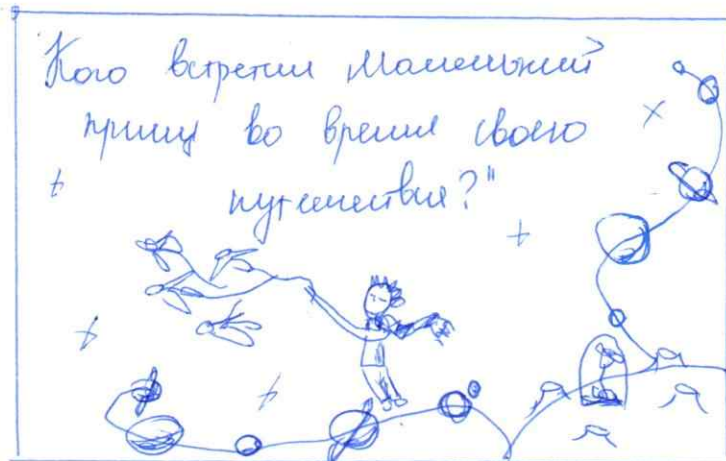 Кого встретил Маленький
принц во время своего
путешествия?"